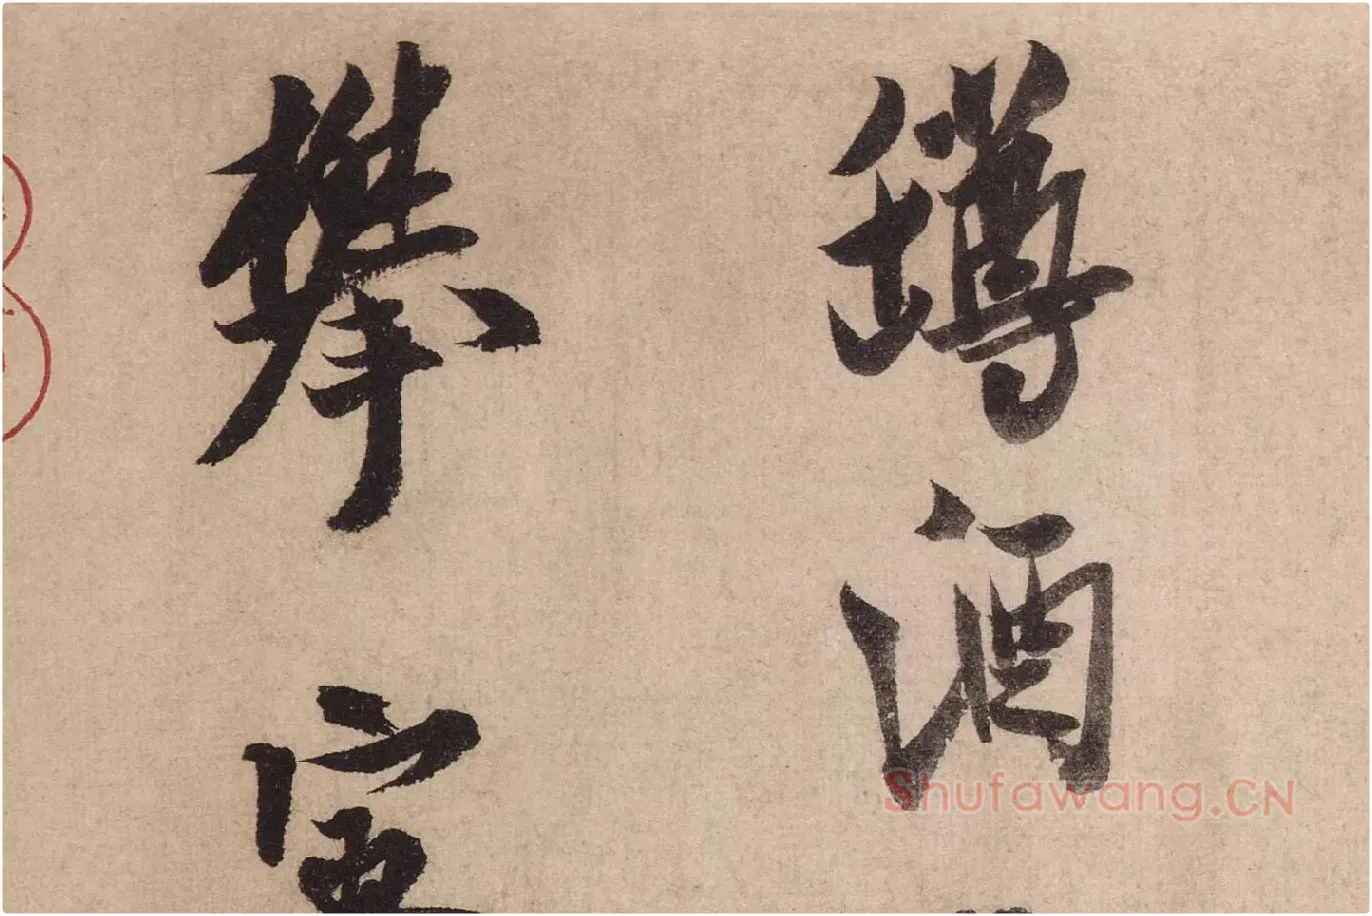 罇酒
攀
Shufawang.CN